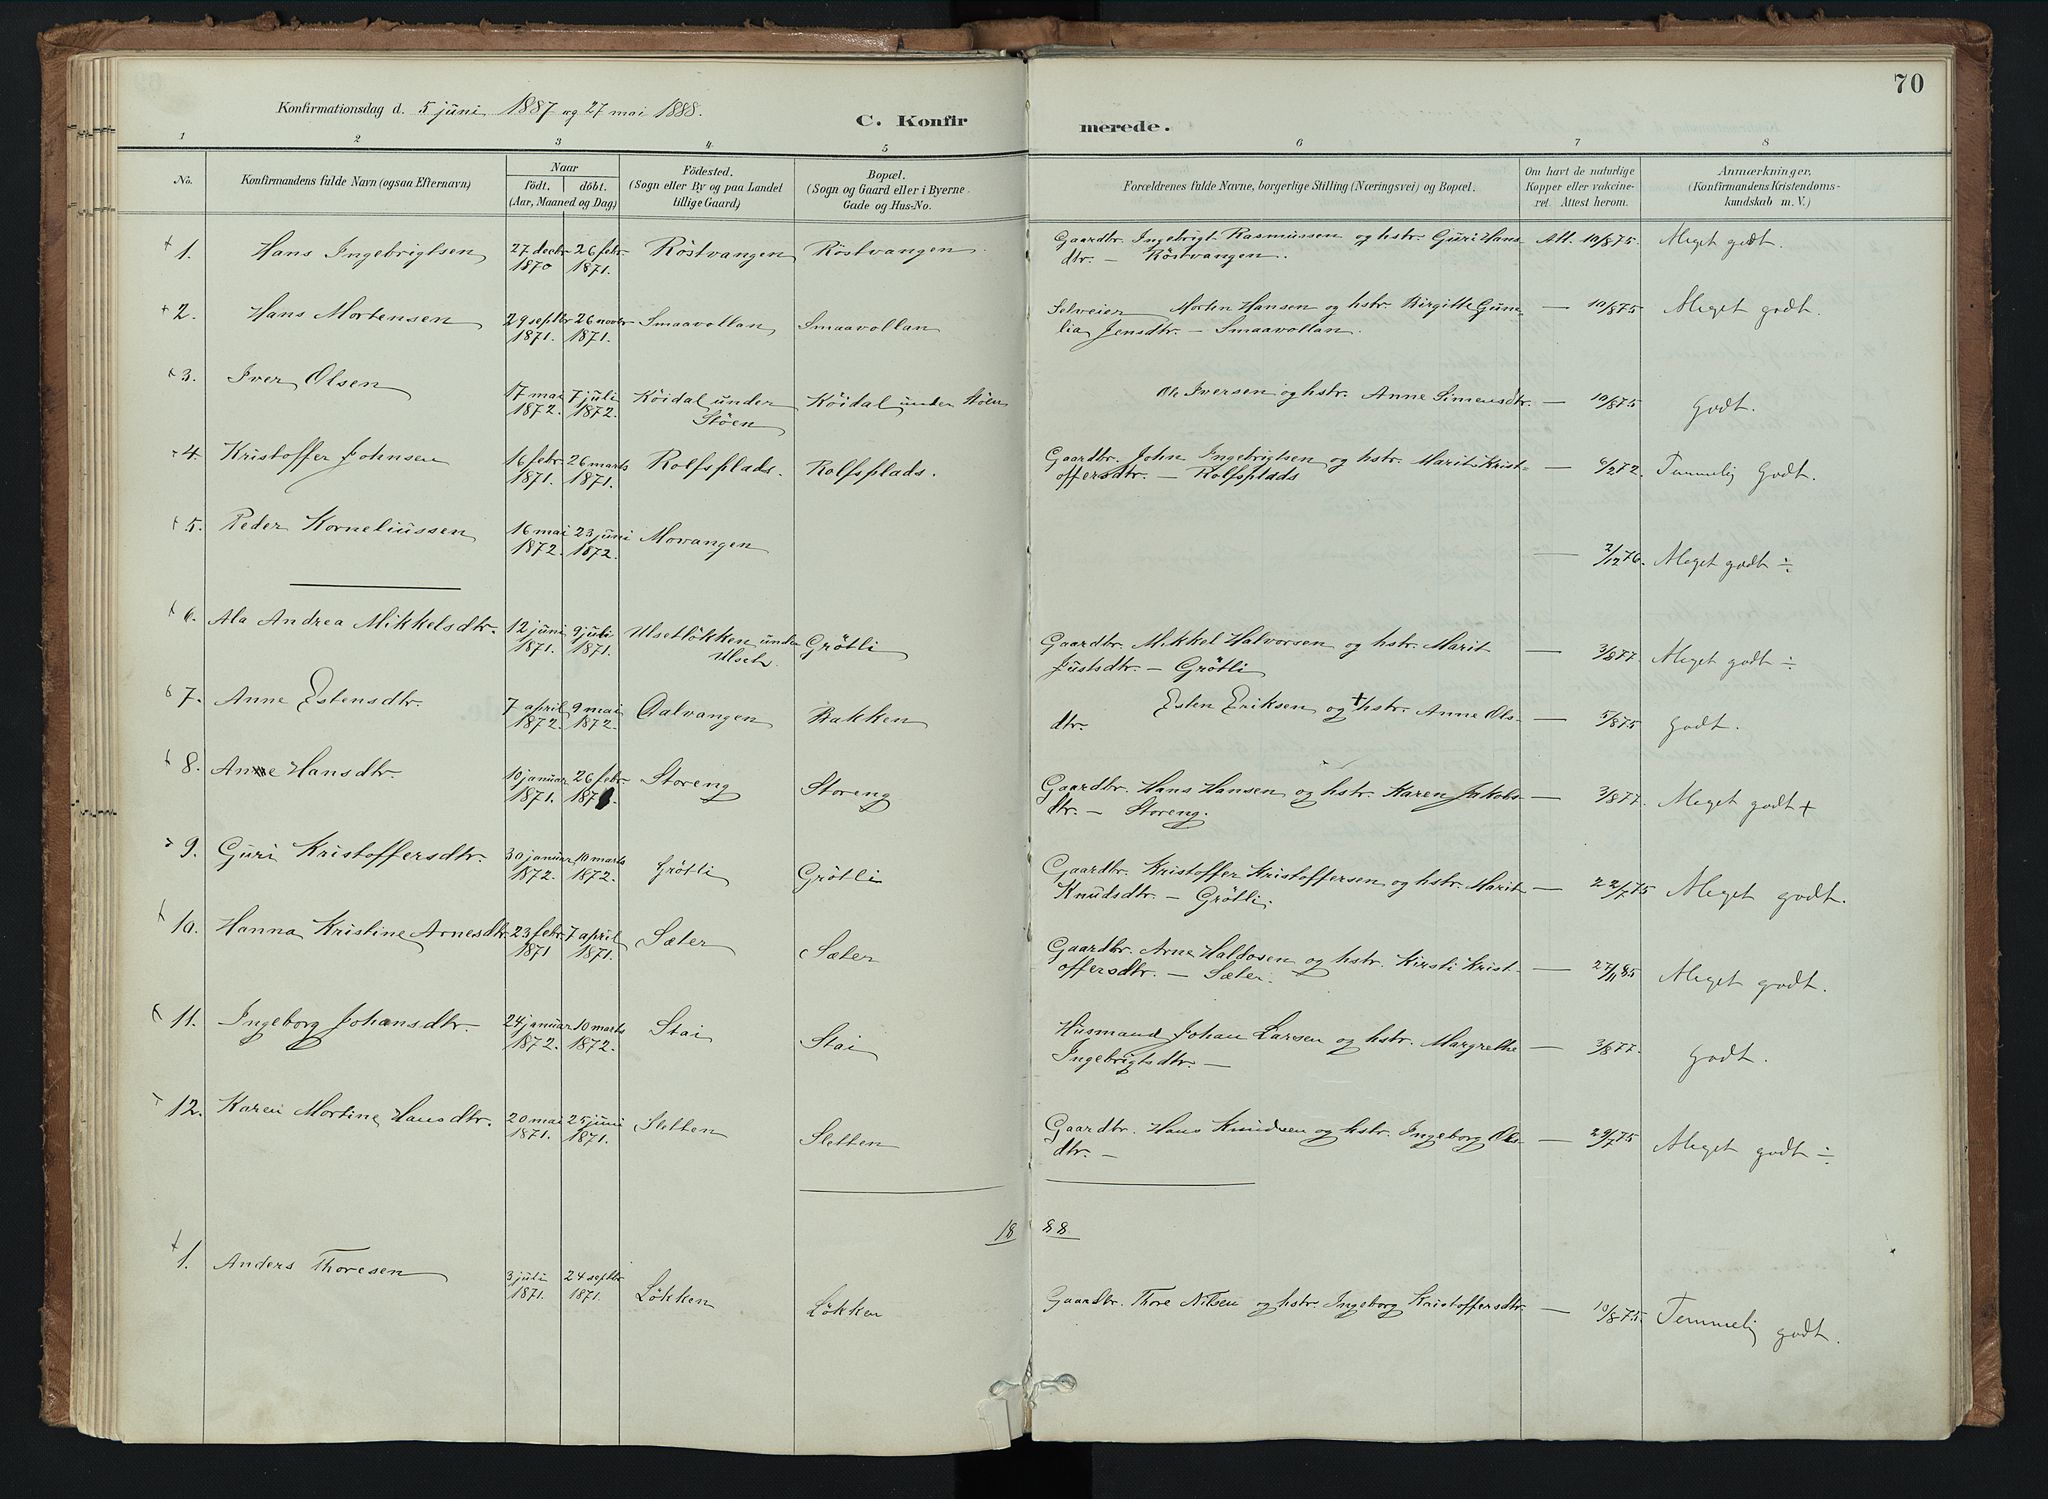 70
Konfirmationsdag d. 5 juni 1887 og 27 mai 1888.
C. Konfirmerede.
1 2 3 4 5 6 7 8
No.
Konfirmandens fulde Navn (ogsaa Efternavn)
Naar
födt. döbt.
(Aar, Maaned og Dag)
Födested.
(Sogn eller By og paa Landet
tillige Gaard)
Bopæl.
(Sogn og Gaard eller i Byerne
Gade og Hus-No.
Forældrenes fulde Navne, borgerlige Stilling (Næringsvei) og Bopæl.
Om havt de naturlige
Kopper eller vakcine-
ret. Attest herom.
Anmærkninger,
(Konfirmandens Kristendoms-
kundskab m. V.)
1. Hans Ingebrigtsen 27 decbr 1870 26 febr. 1871. Röstvangen Röstvangen Gaardbr. Ingebrigt Rasmussen og hstr. Guri Hans- Att. 10/8 75. Meget godt.
dtr. — Röstvangen.
2. Hans Mortensen 29 septbr 1871. 26 novbr 1871. Smaavollan Smaavollan Selveier Morten Hansen og hstr. Birgitte Gune- — 10/8 75 Meget godt.
lia Jensdtr. — Smaavollan.
3. Iver Olsen 17 mai 1872. 7 juli 1872. Köidal under Stöen Köidal under Stöen Ole Iversen og hstr. Anne Simensdtr. — 10/8 75 Godt.
4. Kristoffer Johnsen 16 febr. 1871. 26 marts 1871. Rolfsplads. Rolfsplads. Gaardbr. John Ingebrigtsen og hstr. Marit Krist- — 6/2 72. Temmelig Godt.
offersdtr. — Rolfsplads
5. Peder Korneliussen 16 mai 1872. 23 juni 1872. Movangen — 2/12 76. Meget godt ÷
6. Ala Andrea Mikkelsdtr. 12 juni 1871. 9 juli 1871. Ulsetlökken under Ulset. Grötli Gaardbr. Mikkel Halvorsen og hstr. Marit — 3/8 77. Meget godt ÷
Justsdtr. — Grötli
7. Anne Estensdtr. 7 april 1872. 9 mai 1872. Aalvangen Bakken Esten Eriksen og + hstr. Anne Ols- — 5/8 75 Godt.
dtr.
8. Anne Hansdtr. 10 januar 1871. 26 febr. 1871. Storeng Storeng Gaardbr. Hans Hansen og hstr. Karen Jakobs- — 3/8 77. Meget godt +
dtr. — Storeng.
9. Guri Kristoffersdtr. 30 januar 1872. 10 marts 1872. Grötli Grötli Gaardbr. Kristoffer Kristoffersen og hstr. Marit — 22/7 75 Meget godt.
Knudsdtr. — Grötli.
10. Hanna Kristine Arnesdtr. 23 febr. 1871 7 april 1871. Sæter Sæter Gaardbr. Arne Haldosen og hstr. Kirsti Krist- — 27/11 85 Meget godt.
offersdtr. — Sæter.
11. Ingeborg Johansdtr. 24 januar 1872. 10 marts 1872. Stai Stai Husmand Johan Larsen og hstr. Margrethe — 3/8 77. Godt.
Ingebrigtsdtr. —
12. Karen Martine Hansdtr. 20 mai 1871. 25 juni 1871. Sletten Sletten Gaardbr. Hans Knudsen og hstr. Ingeborg Ols- — 29/7 75 Meget godt ÷
dtr. —
18 88
1. Anders Thoresen 3 juli 1871. 24 septbr 1871. Lökken Lökken Gaardbr. Thore Nilsen og hstr. Ingeborg Kristoffersdtr. — 10/8 75. Temmelig godt.